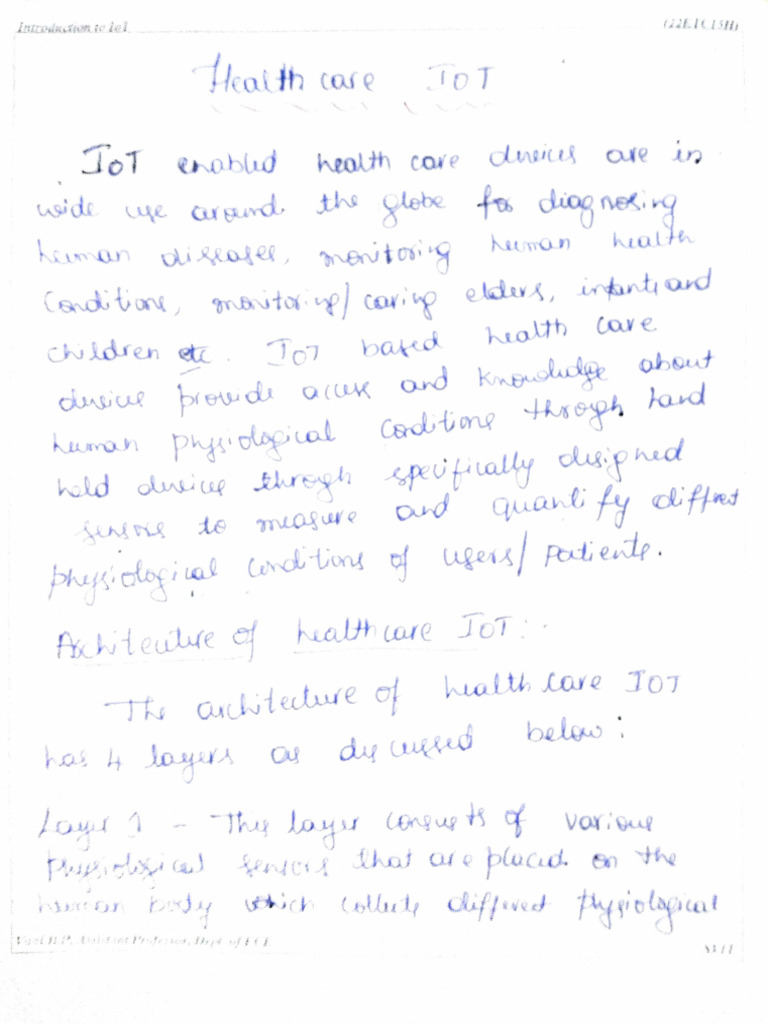 Introduction to IoT
Health care IOT
IOT enabled health care devices are in
wide use around the globe for diagnosing
human diseases, monitoring human health
conditions, monitoring/caring elders, infants and
children etc. IOT based health care
devices provide access and knowledge about
human physiological conditions through hand
held devices through specifically designed
sensors to measure and quantify diffret
physiological conditions of users/patients.
Architecture of healthcare IOT:
The architecture of health care IOT
has 4 layers as discussed below:
Layer 1 - This layer consists of various
physiological sensors that are placed on the
human body which collects different physiological
Assistant Professor, Dept. of ECE